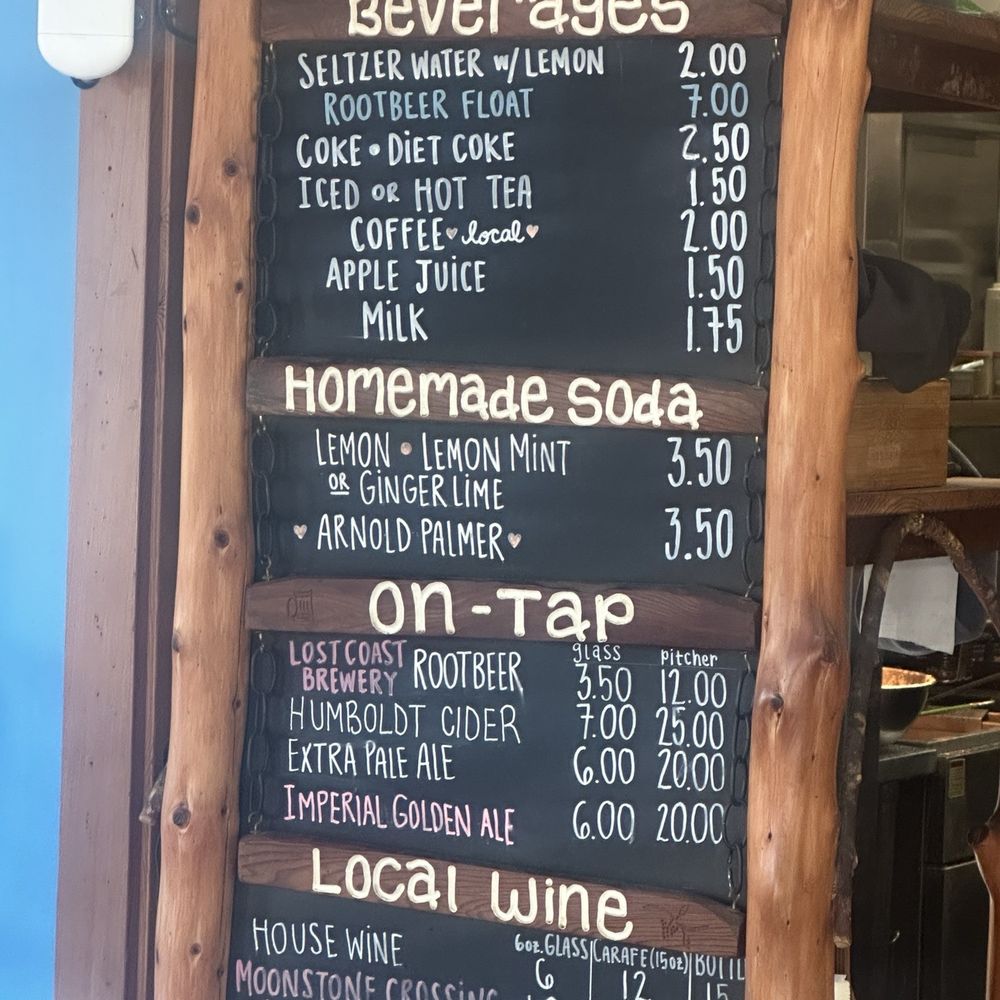 Beverages
SELTZER WATER w/ LEMON 2.00
ROOTBEER FLOAT 7.00
COKE • DIET COKE 2.50
ICED OR HOT TEA 1.50
COFFEE ♥ local ♥ 2.00
APPLE JUICE 1.50
MILK 1.75
HOMEMADE SODA
LEMON • LEMON MINT 3.50
OR GINGER LIME
♥ ARNOLD PALMER ♥ 3.50
ON-TAP
glass pitcher
LOST COAST BREWERY ROOTBEER 3.50 12.00
HUMBOLDT CIDER 7.00 25.00
EXTRA PALE ALE 6.00 20.00
IMPERIAL GOLDEN ALE 6.00 20.00
LOCAL WINE
6oz. GLASS CARAFE (15oz) BOTTL
HOUSE WINE 6 12 15
MOONSTONE CROSSING